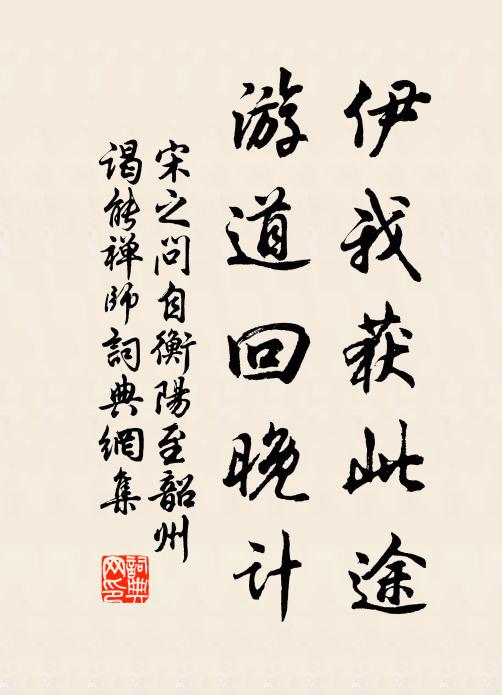 伊我获此途
游道回晚计
宋之问自衡阳至韶州
谒能禅师词典網集
詞典网印